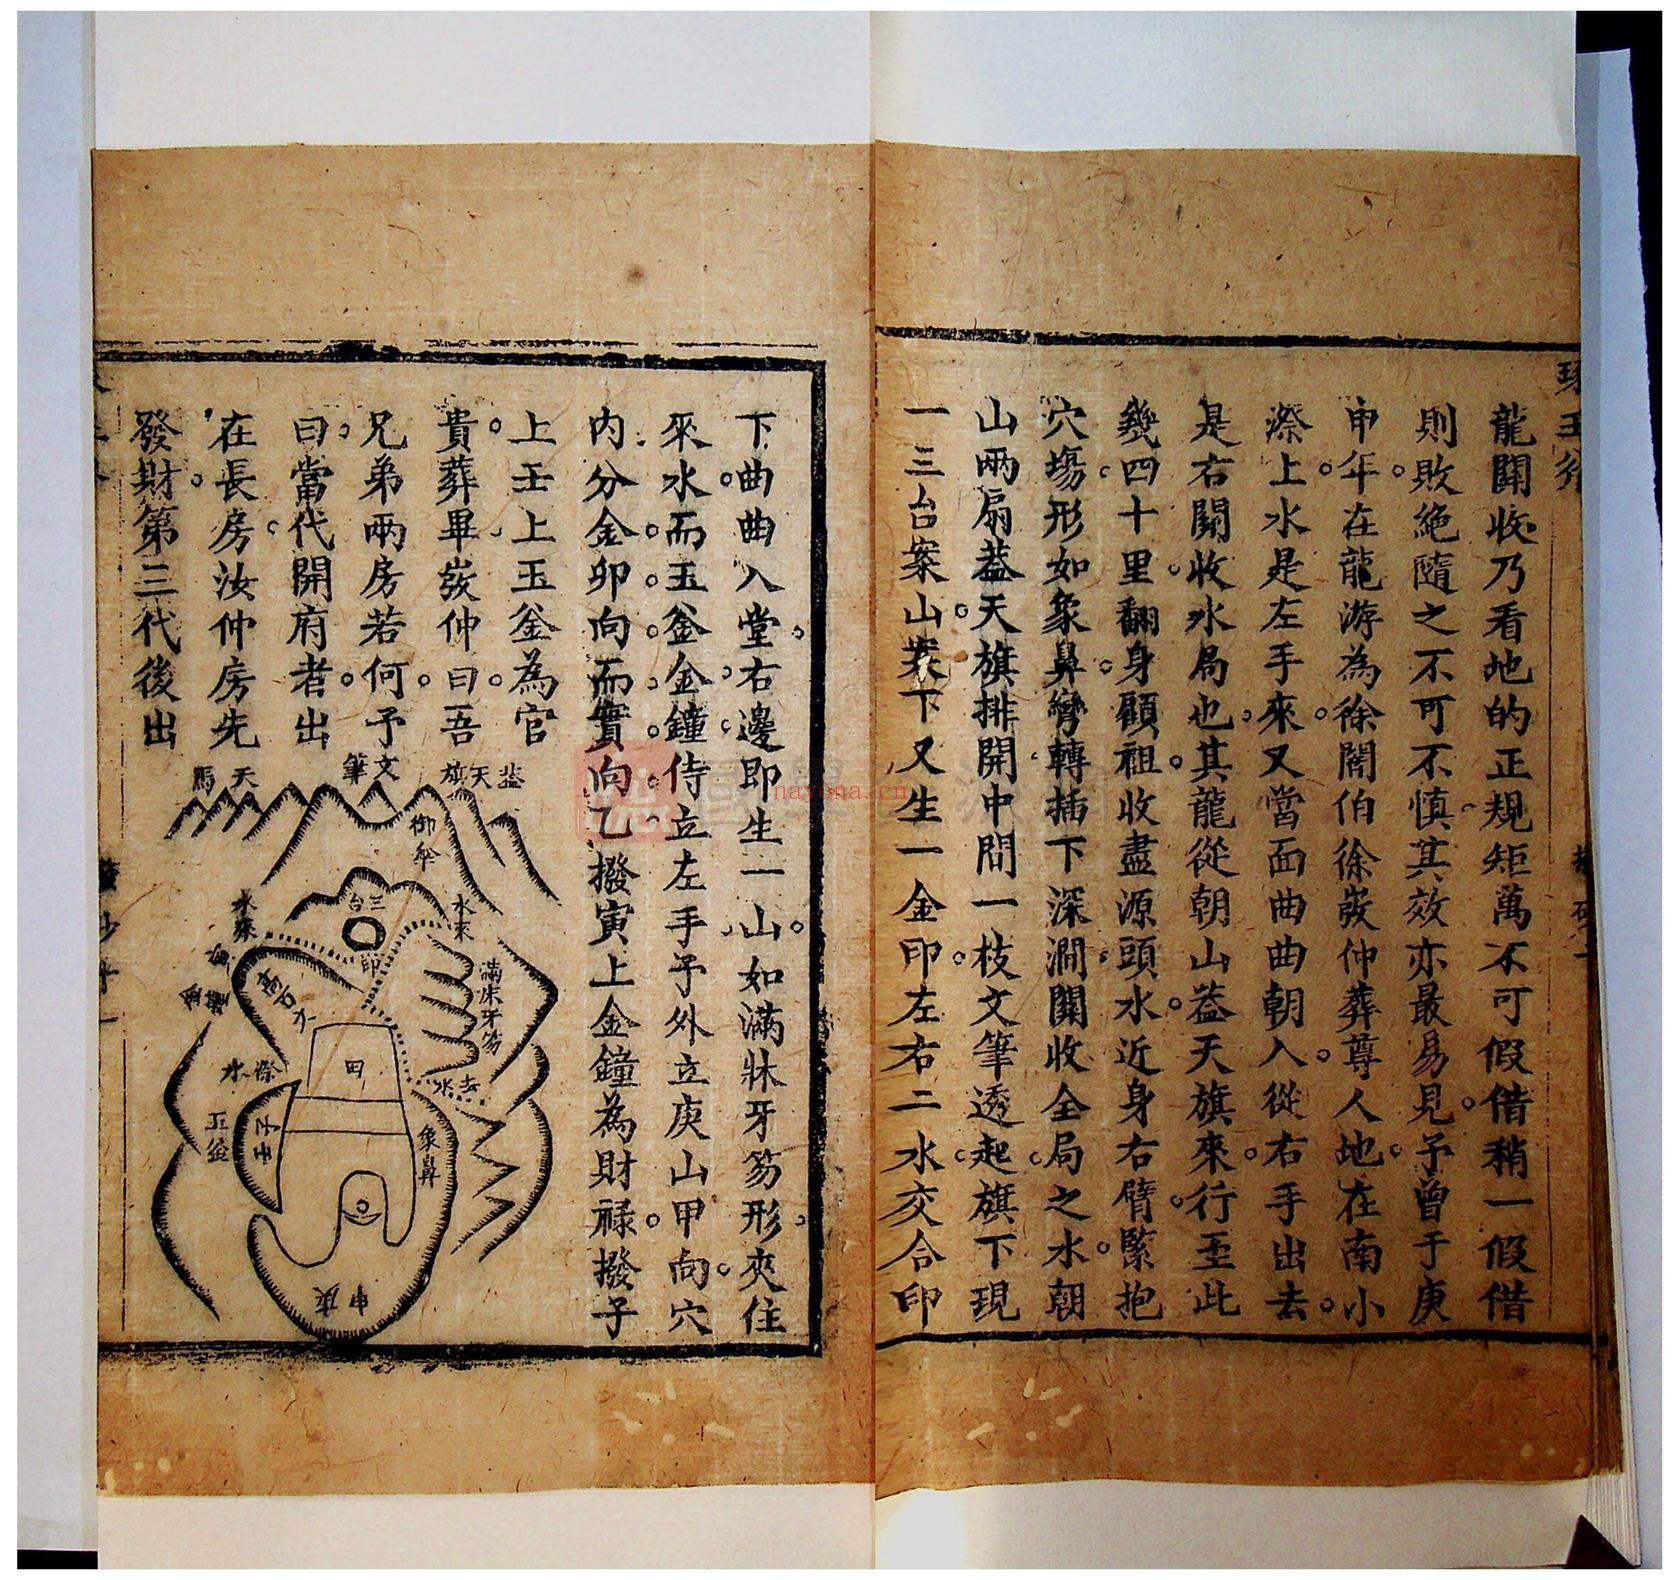 龍關收乃看地的正規矩萬不可假借稍一假借
則敗絕隨之不可不慎其效亦最易見予曾于庚
申年在龍游為徐閣伯徐發仲葬尊人地在南小
漈上水是左手來又當面曲曲朝入從右手出去
是右關收水局也其龍從朝山蓋天旗來行至此
幾四十里翻身顧祖收盡源頭水近身右臂緊抱
穴塲形如象鼻彎轉插下深澗關收全局之水朝
山兩扇蓋天旗排開中間一枝文筆透起旗下現
一三台案山案下又生一金印左右二水交合印
下曲曲入堂右邊即生一山如滿牀牙笏形夾住
來水而玉釜金鐘侍立左手予外立庚山甲向穴
內分金卯向而實向乙撥寅上金鐘為財祿撥子
上壬上玉釜為官
貴葬畢發仲曰吾
兄弟兩房若何予
曰當代開府者出
在長房汝仲房先
發財第三代後出
蓋天旗
文筆
天馬
御傘
三台
印
水來
水來
滿床牙笏
水去
田
象鼻
玉釜
庚申
nayona.cn